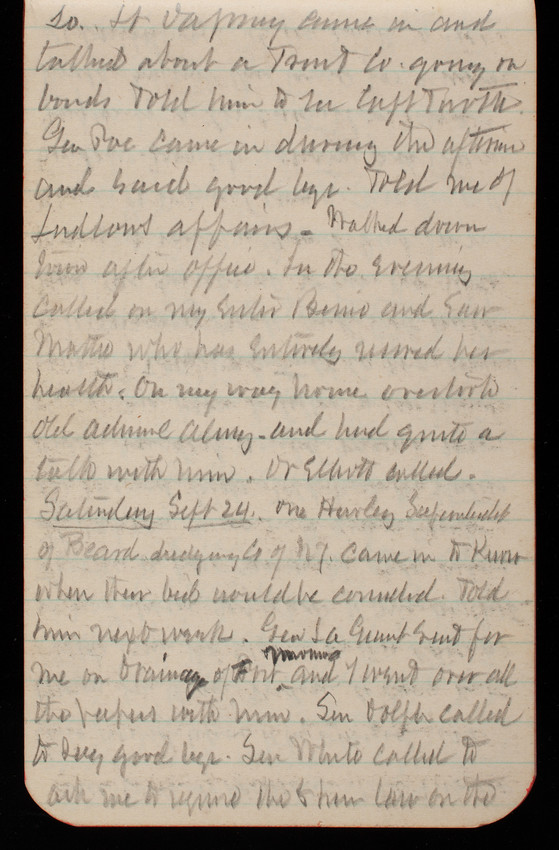 so. Lt came in and
talked about a Trust Co. going on
bonds told him to see Capt Turtle.
Gen Poe came in during the afternoon
and said good bye. Told me of
Ludlows affairs - Walked down
town after office. In the evening
called on my sister and saw
Mattie who has entirely her
health. On my way home overtook
old and had quite a
talk with him. Dr Elliott called.
Saturday Sept 24. One Hawley
of Beard dredging Co of NY. came in to Know
when their bid would be Told
him next week. Gen sent for
me on Drainage of Fort
and I went over all
the papers with him. Sen Dolph called
to say good bye. Gen White called to
ask me to the 8 hour law on the